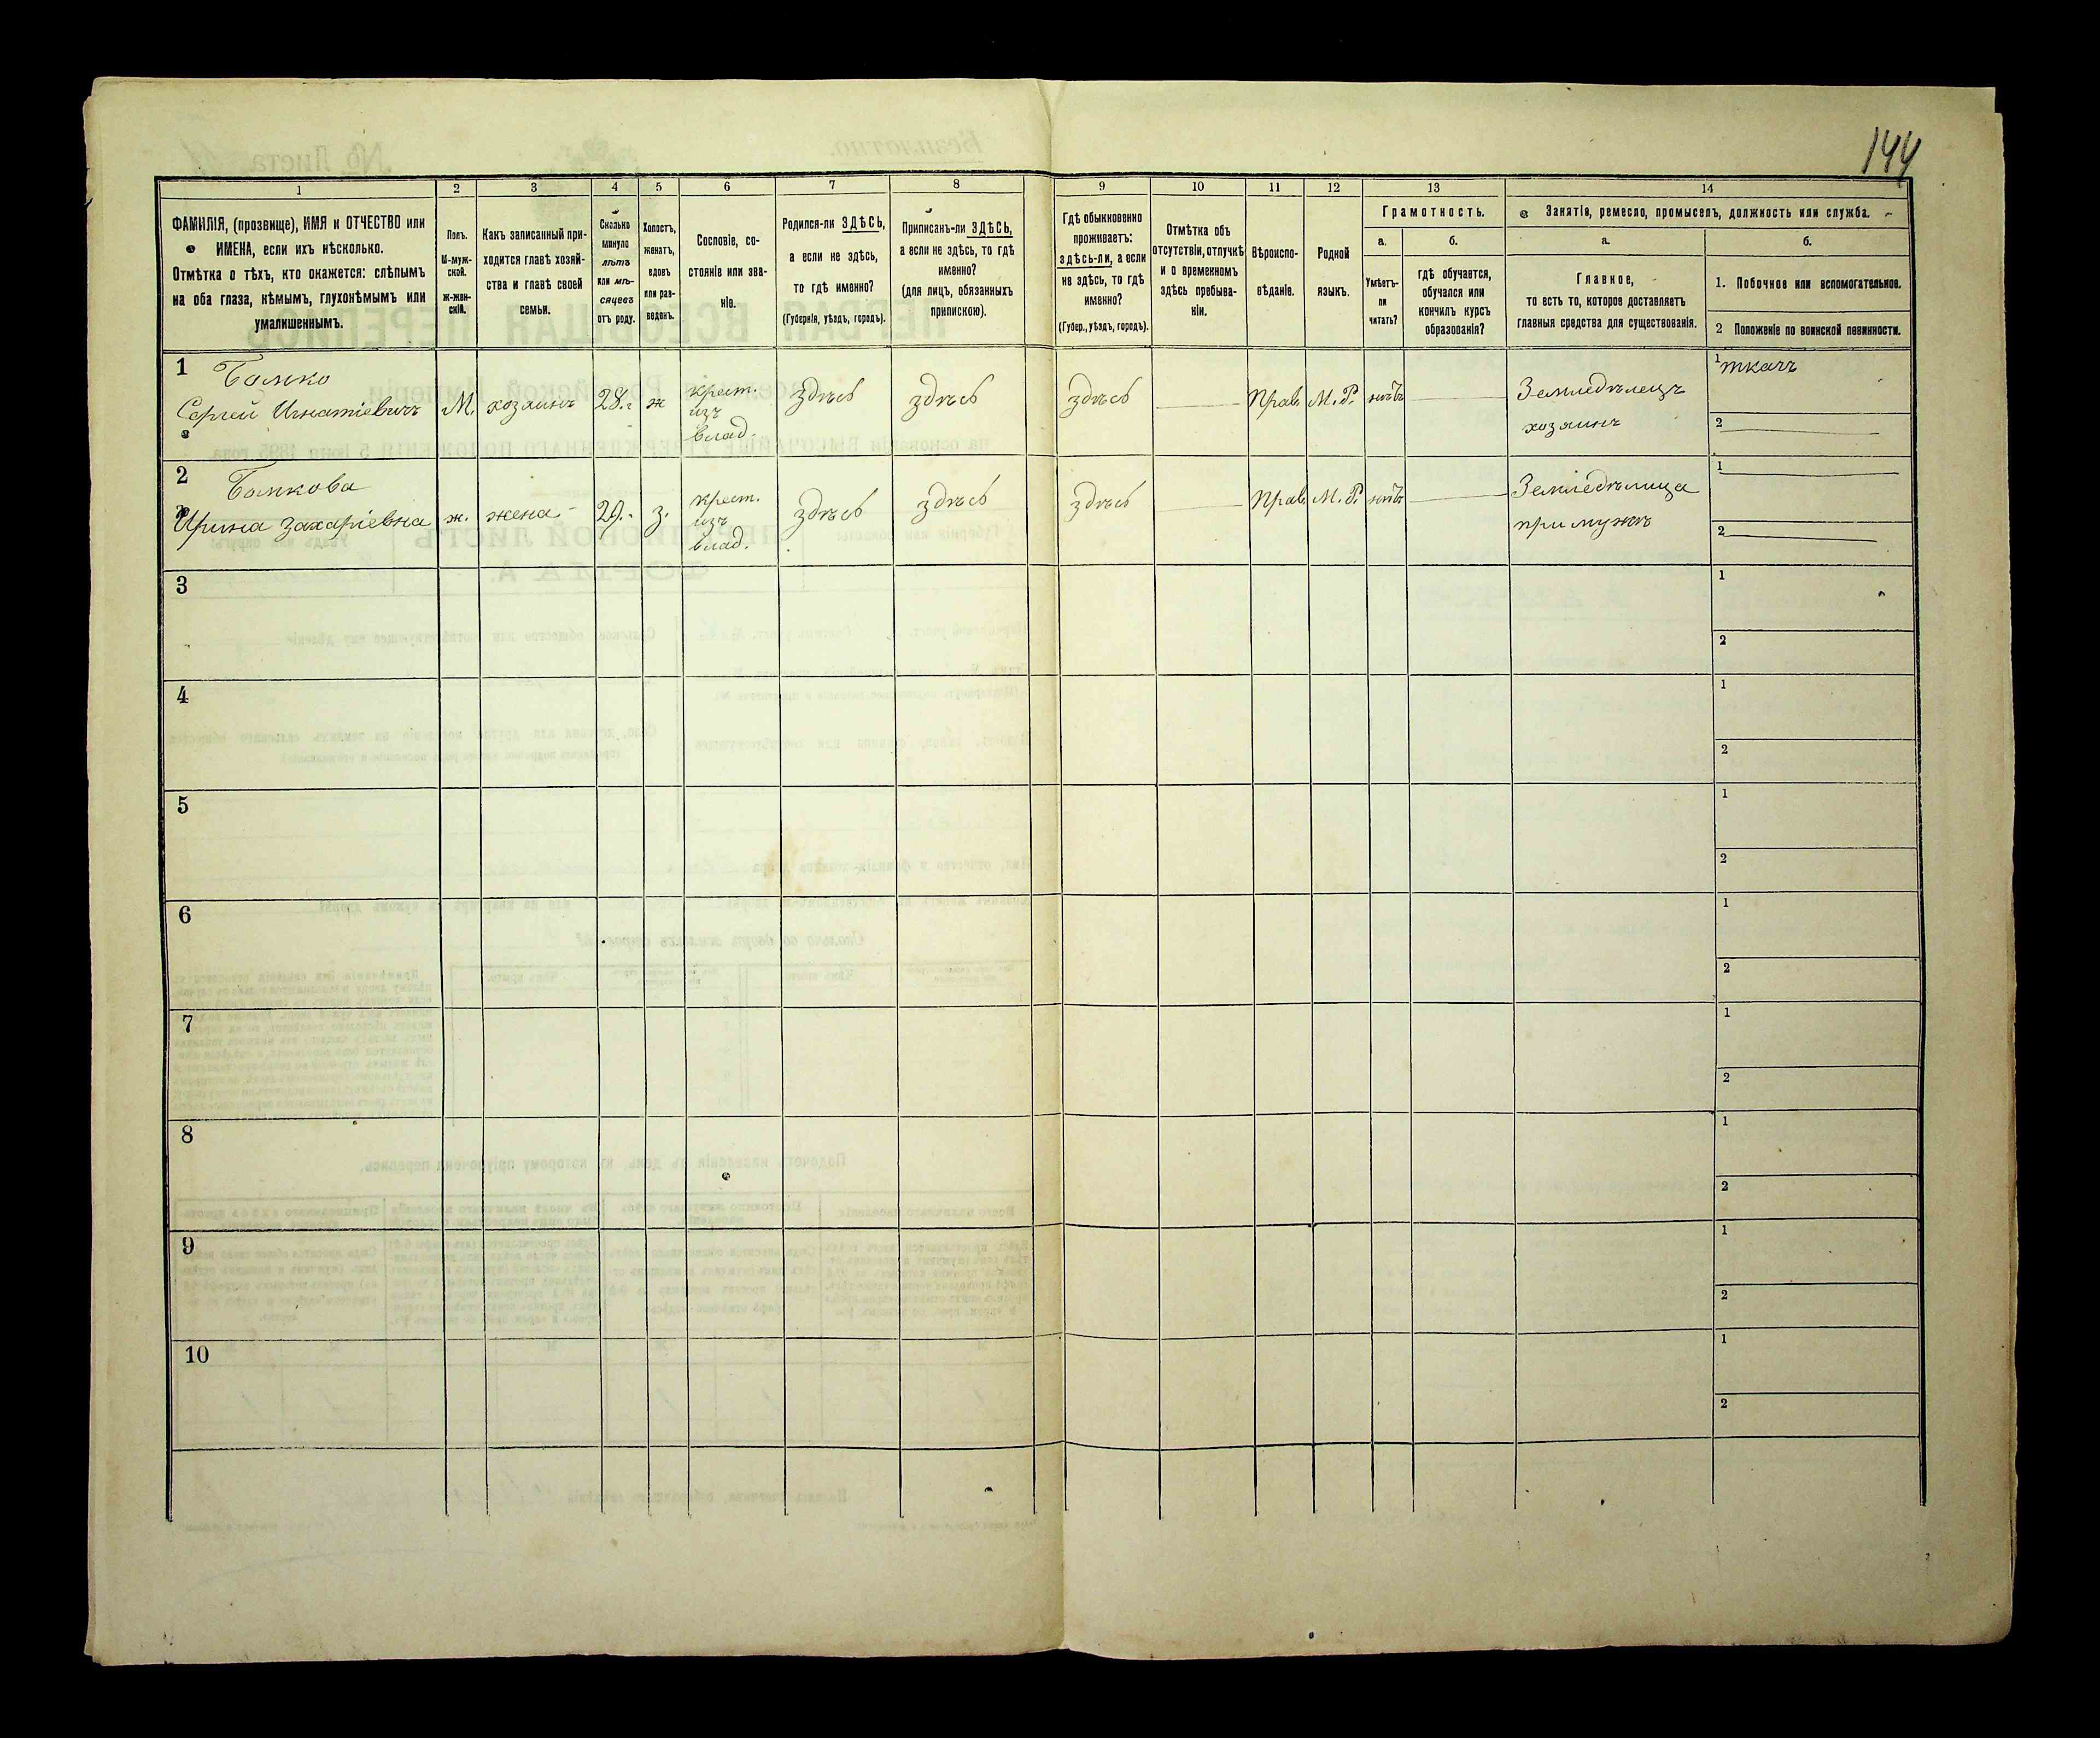 144
1
2
3
4
5
6
7
8
9
10
11
12
13
14
ФАМИЛІЯ, (прозвище), ИМЯ и ОТЧЕСТВО или
ИМЕНА, если ихъ нѣсколько.
Отмѣтка о тѣхъ, кто окажется: слѣпымъ
на оба глаза, нѣмымъ, глухонѣмымъ или
умалишеннымъ.
Полъ.
М-муж-
ской.
Ж-жен-
скій.
Какъ записанный при-
ходится главѣ хозяй-
ства и главѣ своей
семьи.
Сколько
минуло
лѣтъ
или мѣ-
сяцевъ
отъ роду.
Холостъ,
женатъ,
вдовъ
или раз-
веденъ.
Сословіе, со-
стояніе или зва-
ніе.
Родился-ли ЗДѢСЬ,
а если не здѣсь,
то гдѣ именно?
(Губернія, уѣздъ, городъ).
Приписанъ-ли ЗДѢСЬ,
а если не здѣсь, то гдѣ
именно?
(для лицъ, обязанныхъ
припискою).
Гдѣ обыкновенно
проживаетъ:
здѣсь-ли, а если
не здѣсь, то гдѣ
именно?
(Губер., уѣздъ, городъ).
Отмѣтка объ
отсутствіи, отлучкѣ
и о временномъ
здѣсь пребыва-
ніи.
Вѣроиспо-
вѣданіе.
Родной
языкъ.
Грамотность.
а.
Умѣетъ-
ли
читать?
б.
гдѣ обучается,
обучался или
кончилъ курсъ
образованія?
Занятія, ремесло, промыселъ, должность или служба.
а.
Главное,
то есть то, которое доставляетъ
главныя средства для существованія.
б.
1. Побочное или вспомогательное.
2 Положеніе по воинской повинности.
1
Бомко
Сергей Игнатіевичъ
М.
хозяинъ
28.
ж
крест.
изъ
влад.
здѣсь
здѣсь
здѣсь
Прав.
М. Р.
нѣтъ
Земледѣлецъ
хозяинъ
1 ткачъ
2
2
Бомкова
Ирина Захаріевна
ж.
жена
29.
з.
крест.
изъ
влад.
здѣсь
здѣсь
здѣсь
Прав.
М. Р.
нѣтъ
Земледѣлица
при мужѣ
1
2
3
1
2
4
1
2
5
1
2
6
1
2
7
1
2
8
1
2
9
1
2
10
1
2